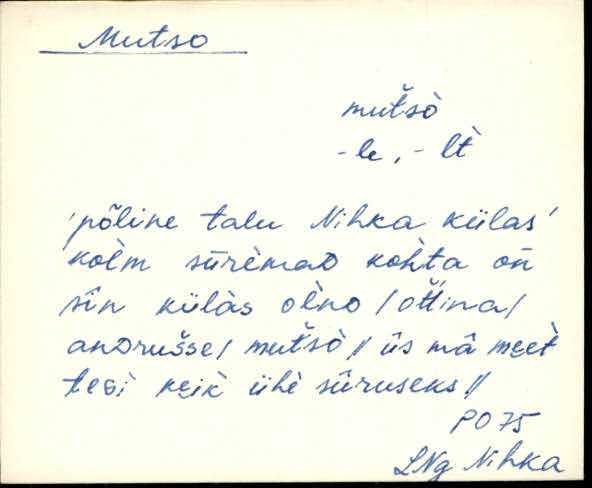 Mutso
mut̆sò
-le, - lt̀
'põline talu Nihka külas'
kolm sūrèmaᴅ kohta oñ
sīn külàs olno / ot̆t̆ina /
anᴅrušse / mut̆šò // üs mā meèt
teɢi keik ühè sūruseks //
PO 75
LNg Nihka